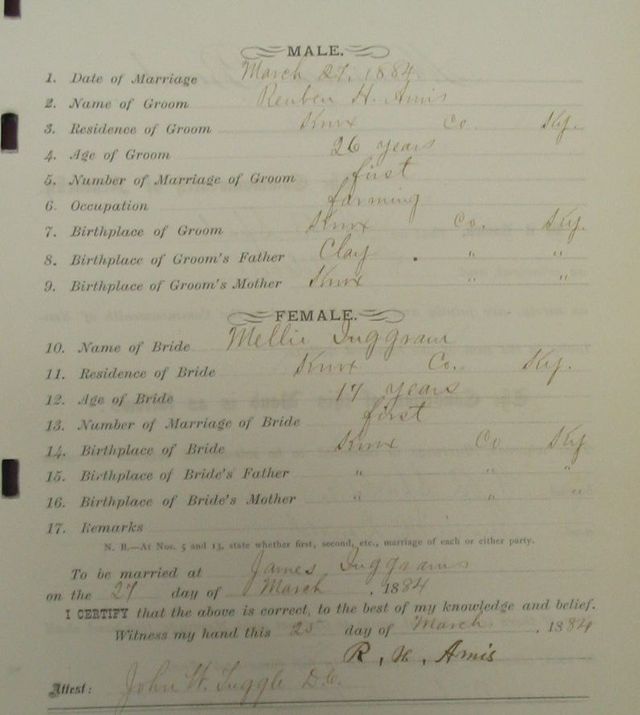 MALE.
1. Date of Marriage March 27, 1884
2. Name of Groom Reuben H. Amis
3. Residence of Groom Knox Co. Ky.
4. Age of Groom 26 years
5. Number of Marriage of Groom first
6. Occupation farming
7. Birthplace of Groom Knox Co. Ky.
8. Birthplace of Groom's Father Clay " "
9. Birthplace of Groom's Mother Knox " "
FEMALE.
10. Name of Bride Mellie Inggram
11. Residence of Bride Knox Co. Ky.
12. Age of Bride 17 years
13. Number of Marriage of Bride first
14. Birthplace of Bride Knox Co Ky
15. Birthplace of Bride's Father " " "
16. Birthplace of Bride's Mother " " "
17. Remarks
N. B.—At Nos. 5 and 13, state whether first, second, etc., marriage of each or either party.
To be married at James Inggrams
on the 27 day of March, 1884
I CERTIFY that the above is correct, to the best of my knowledge and belief.
Witness my hand this 25 day of March, 1884
R. H. Amis
Attest: John W. Tuggle D.C.